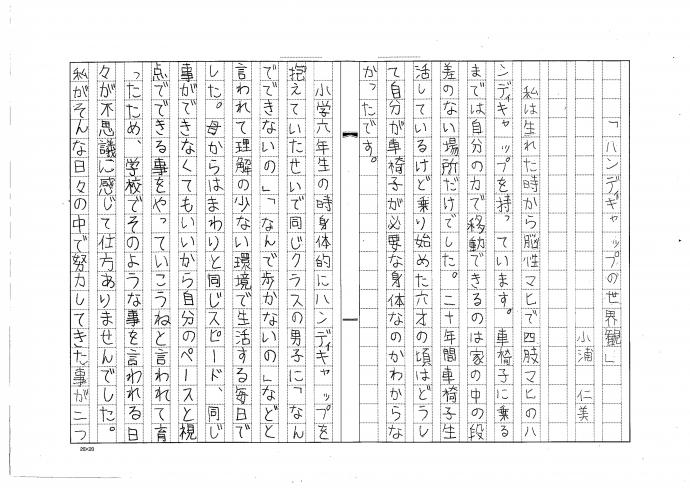 「ハンディキャップの世界観」
小浦 仁美
私は生れた時から脳性マヒで四肢マヒのハ
ンディキャップを持っています。車椅子に乗る
までは自分の力で移動できるのは家の中の段
差のない場所だけでした。二十年間車椅子生
活しているけど乗り始めた六才の頃はどうし
て自分が車椅子が必要な身体なのかわからな
かったです。
小学六年生の時身体的にハンディキャップを
抱えていたせいで同じクラスの男子に「なん
でできないの」「なんで歩かないの」などと
言われて理解の少ない環境で生活する毎日で
した。母からはまわりと同じスピード、同じ
事ができなくてもいいから自分のペースと視
点でできる事をやっていこうねと言われて育
ったため、学校でそのような事を言われる日
々が不思議に感じて仕方ありませんでした。
私がそんな日々の中で努力してきた事が二つ
20×20